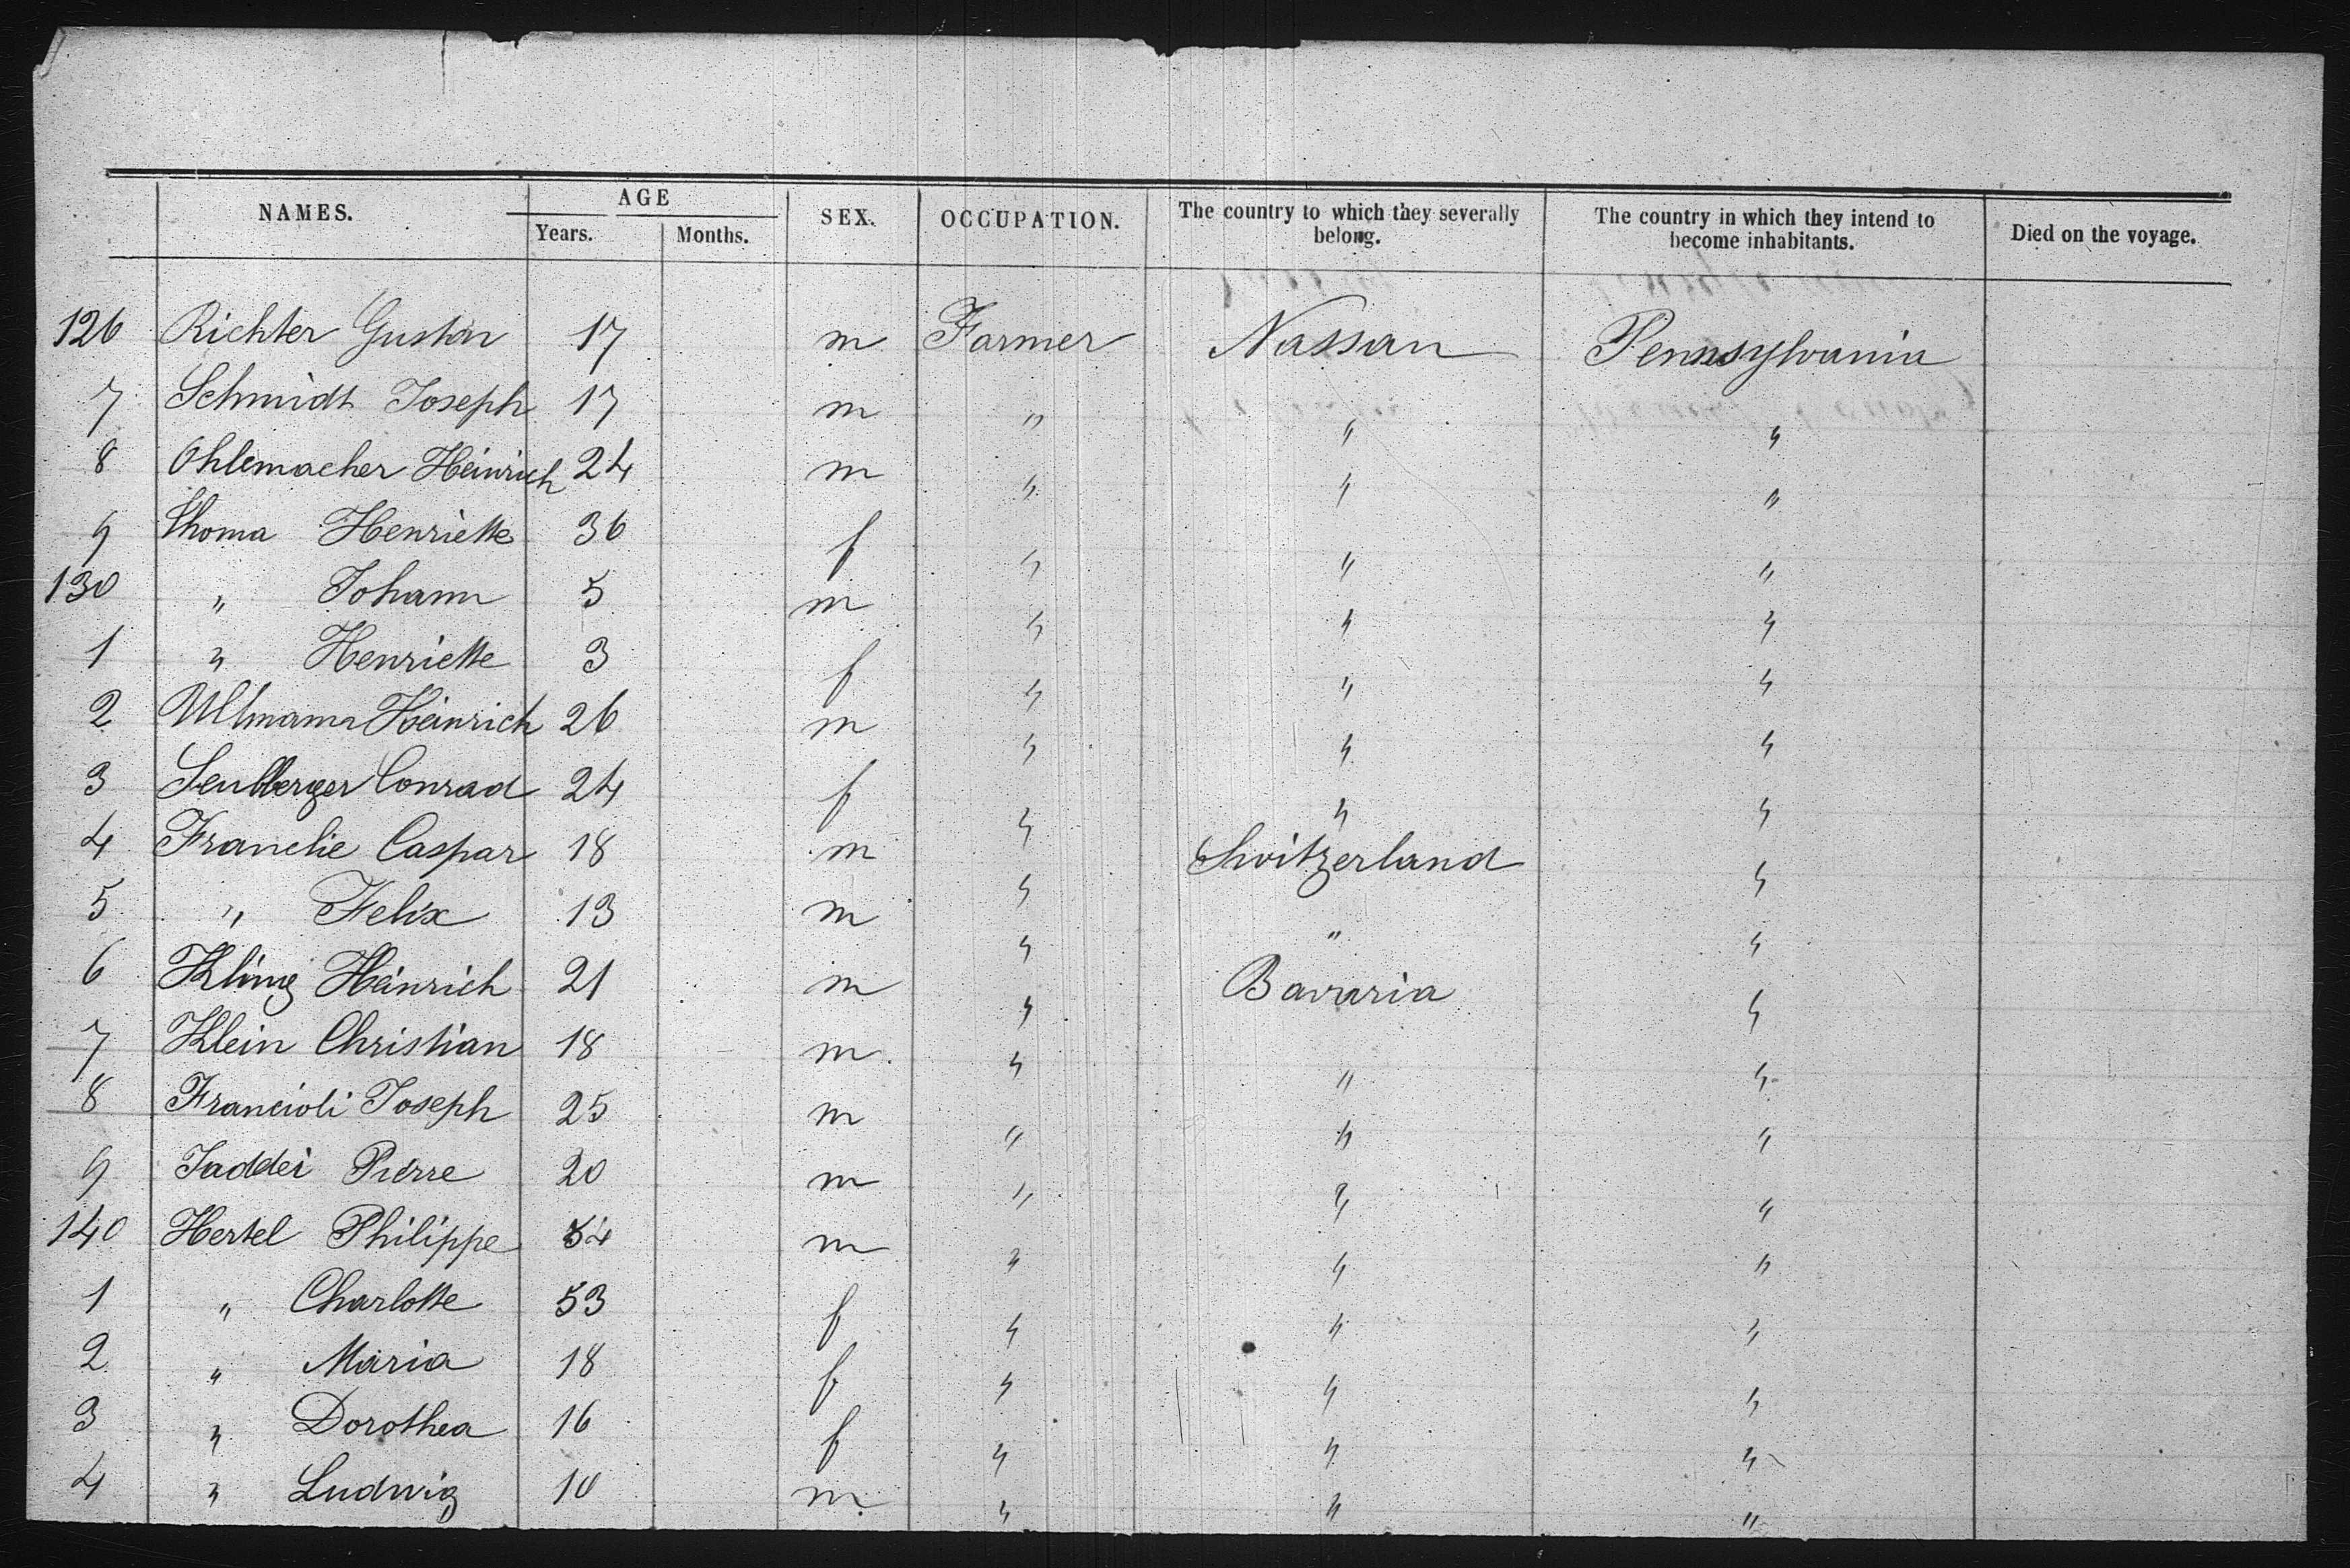 NAMES. AGE SEX. OCCUPATION. The country to which they severally belong. The country in which they intend to become inhabitants. Died on the voyage.
Years. Months.
126 Richter Gustav 17 m Farmer Nassau Pennsylvania
7 Schmidt Joseph 17 m " " "
8 Ohlemacher Heinrich 24 m " " "
9 Thoma Henriette 36 f " " "
130 " Johann 5 m " " "
1 " Henriette 3 f " " "
2 Ullmann Heinrich 26 m " " "
3 Seulberger Conrad 24 f " " "
4 Franchie Caspar 18 m " Switzerland "
5 " Felix 13 m " " "
6 Kling Heinrich 21 m " Bavaria "
7 Klein Christian 18 m " " "
8 Francioli Joseph 25 m " " "
9 Taddei Pierre 20 m " " "
140 Hertel Philippe 54 m " " "
1 " Charlotte 53 f " " "
2 " Maria 18 f " " "
3 " Dorothea 16 f " " "
4 " Ludwig 10 m " " "